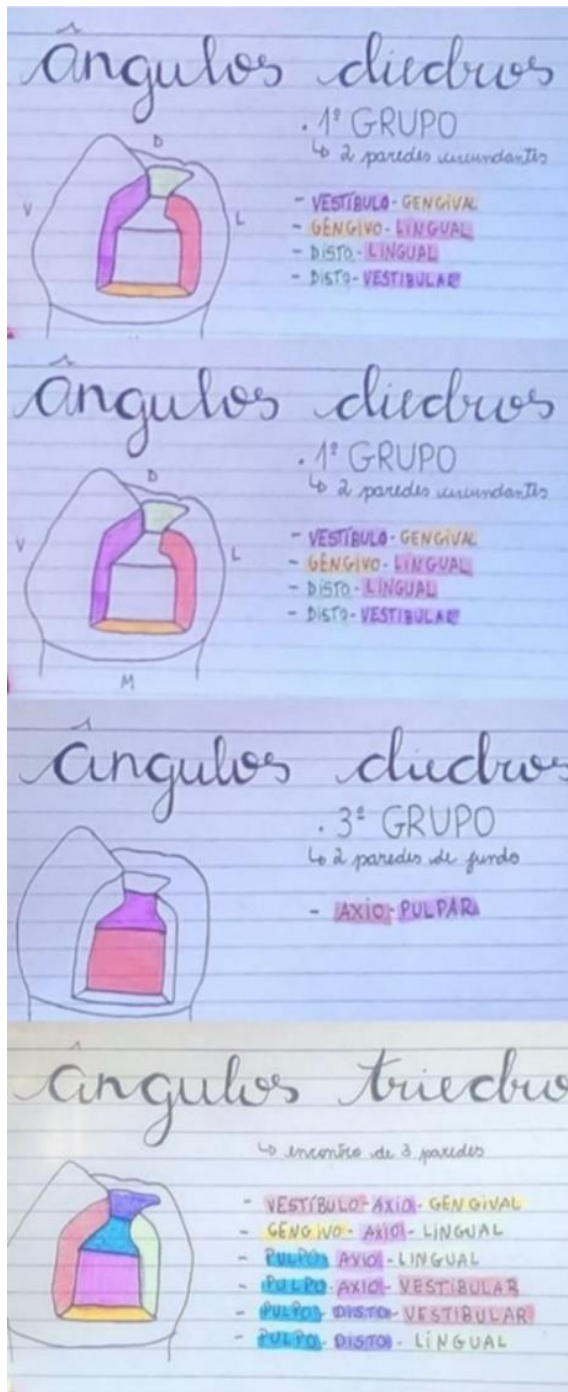 ângulos diedros
. 1º GRUPO
↳ 2 paredes circundantes
D
V
L
- VESTÍBULO-GENGIVAL
- GENGIVO-LINGUAL
- DISTO-LINGUAL
- DISTO-VESTIBULAR
ângulos diedros
. 1º GRUPO
↳ 2 paredes circundantes
D
V
L
- VESTÍBULO-GENGIVAL
- GENGIVO-LINGUAL
- DISTO-LINGUAL
- DISTO-VESTIBULAR
M
ângulos diedros
. 3º GRUPO
↳ 2 paredes de fundo
- AXIO-PULPAR
ângulos triedro
↳ encontro de 3 paredes
- VESTÍBULO-AXIO-GENGIVAL
- GENGIVO-AXIO-LINGUAL
- PULPO-AXIO-LINGUAL
- PULPO-AXIO-VESTIBULAR
- PULPO-DISTO-VESTIBULAR
- PULPO-DISTO-LINGUAL